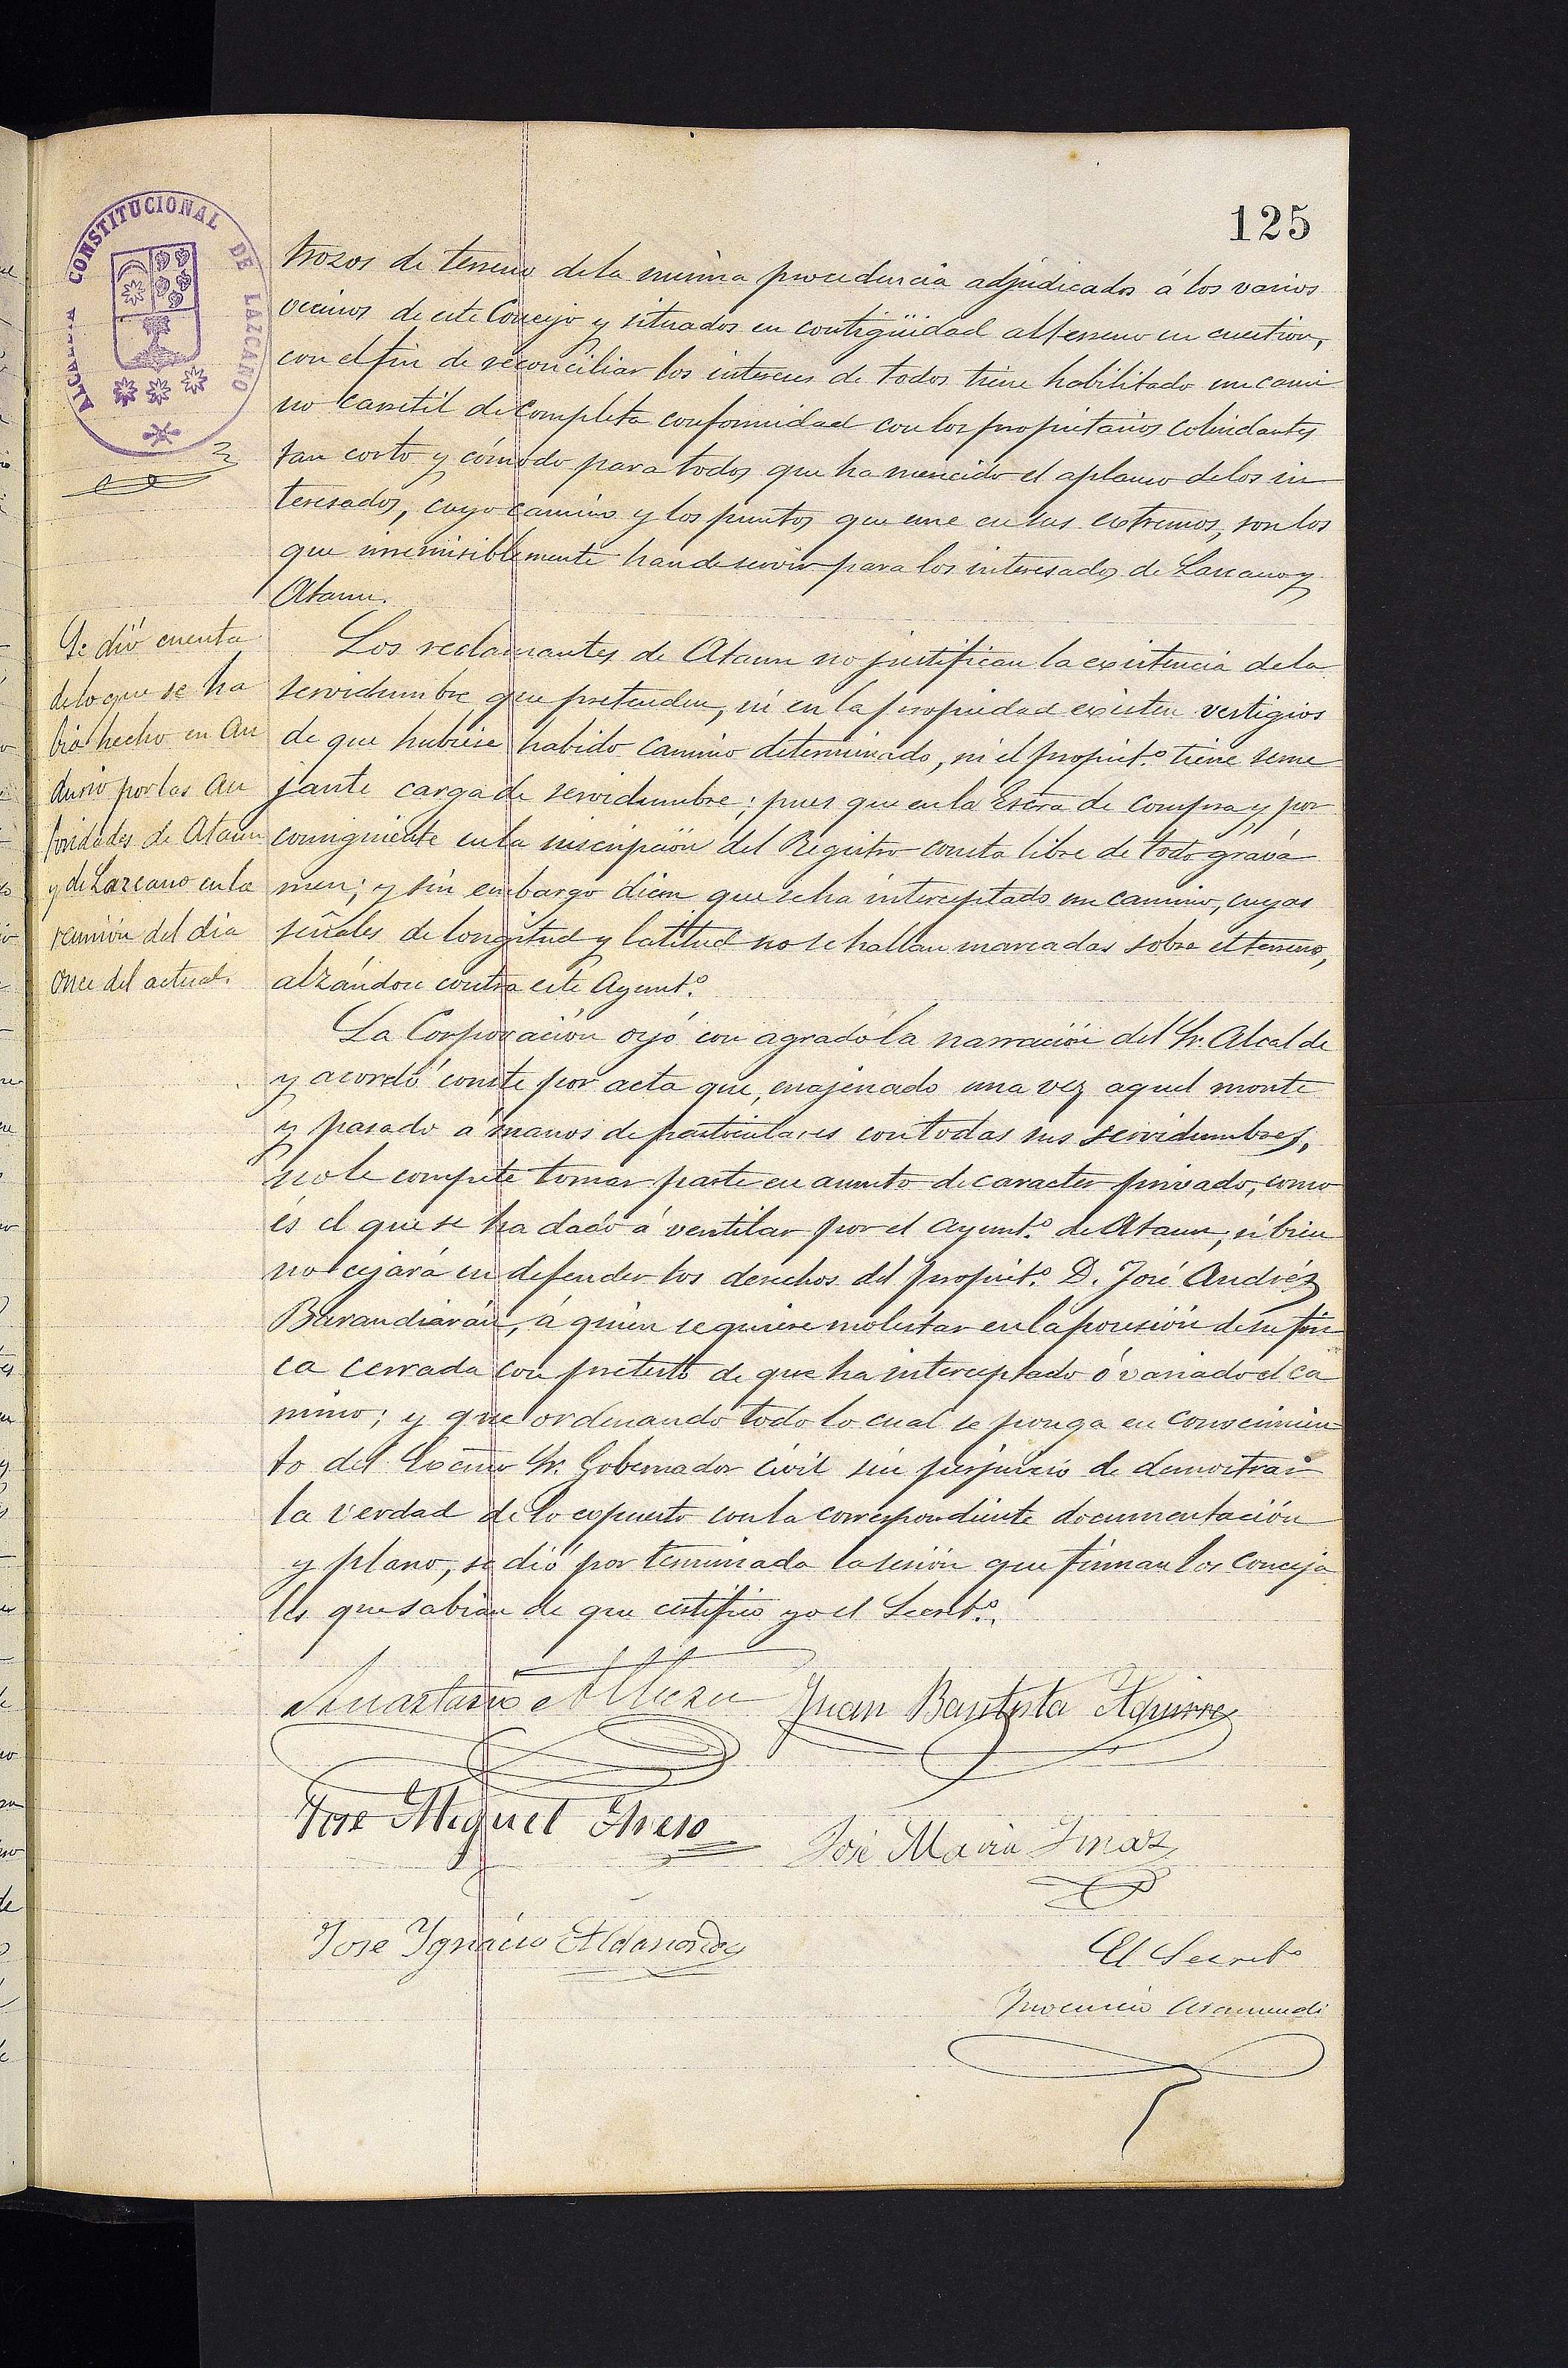 125
ALCALDIA CONSTITUCIONAL DE LAZCANO
trozos de terreno de la misma procedencia adjudicados á los varios
vecinos de este Concejo y situados en contigüidad al terreno en cuestion,
con el fin de reconciliar los intereses de todos tiene habilitado un cami
no carretil de completa conformidad con los propietarios colindantes
tan corto y cómodo para todos que ha merecido el aplauso de los in
teresados, cuyo camino y los puntos que une en sus extremos, son los
que irremisiblemente han de servir para los interesados de Lazcano y
Ataun.
Se dió cuenta
de lo que se ha
bia hecho en An
durio por las Au
toridades de Ataun
y de Lazcano en la
reunión del dia
once del actual.
Los reclamantes de Ataun no justifican la existencia de la
servidumbre que pretenden, ni en la propiedad existen vestigios
de que hubiese habido camino determinado, ni el propiet.º tiene seme
jante carga de servidumbre; pues que en la Escra de compra y por
consiguiente en la inscripción del Registro consta libre de todo gravá
men; y sin embargo dicen que se ha interceptado un camino, cuyas
señales de longitud y latitud no se hallan marcadas sobre el terreno,
alzándose contra este Ayunt.º
La Corporación oyó con agrado la narración del Sr. Alcalde
y acordó conste por acta que, enajenado una vez aquel monte
y pasado á manos de particulares con todas sus servidumbres,
no le compete tomar parte en asunto de caracter privado, como
és el que se ha dado á ventilar por el Ayunt.º de Ataun, si bien
no cejará en defender los derechos del propiet.º D. José Andréz
Barandiarán, á quien se quiere molestar en la posesión de su fin
ca cerrada con pretesto de que ha interceptado ó variado el ca
mino; y que ordenando todo lo cual se ponga en conocimien
to del Excmo Sr. Gobernador Civil sin perjuicio de demostrar
la verdad de lo expuesto con la correspondiente documentación
y plano, se dió por terminada la sesión que firman los conceja
les que sabian de que certifico yo el Secret.º.
Anastasio Albizu Juan Bautista Aguirre
Jose Miguel
José Maria Imaz
Jose Ygnacio
El Secret.º
Ynocencio Asamendi